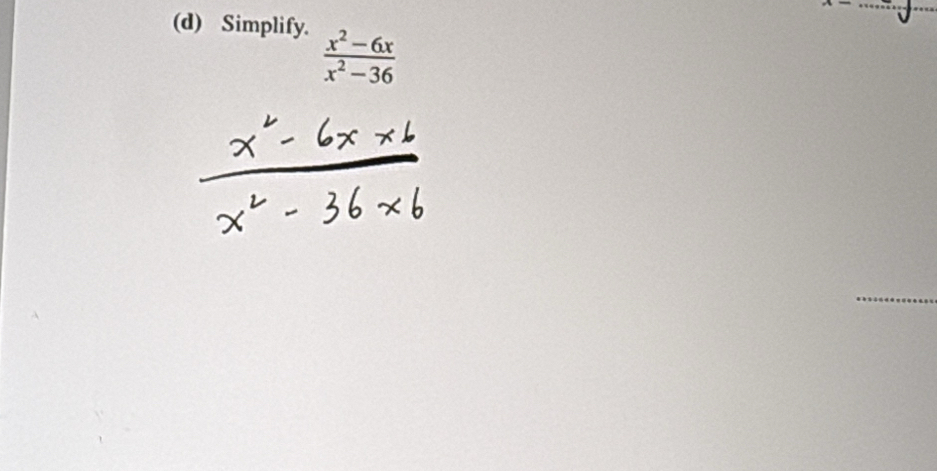 (d) Simplify.
x² − 6x
x² − 36
x² - 6x × 6
x² - 36 × 6